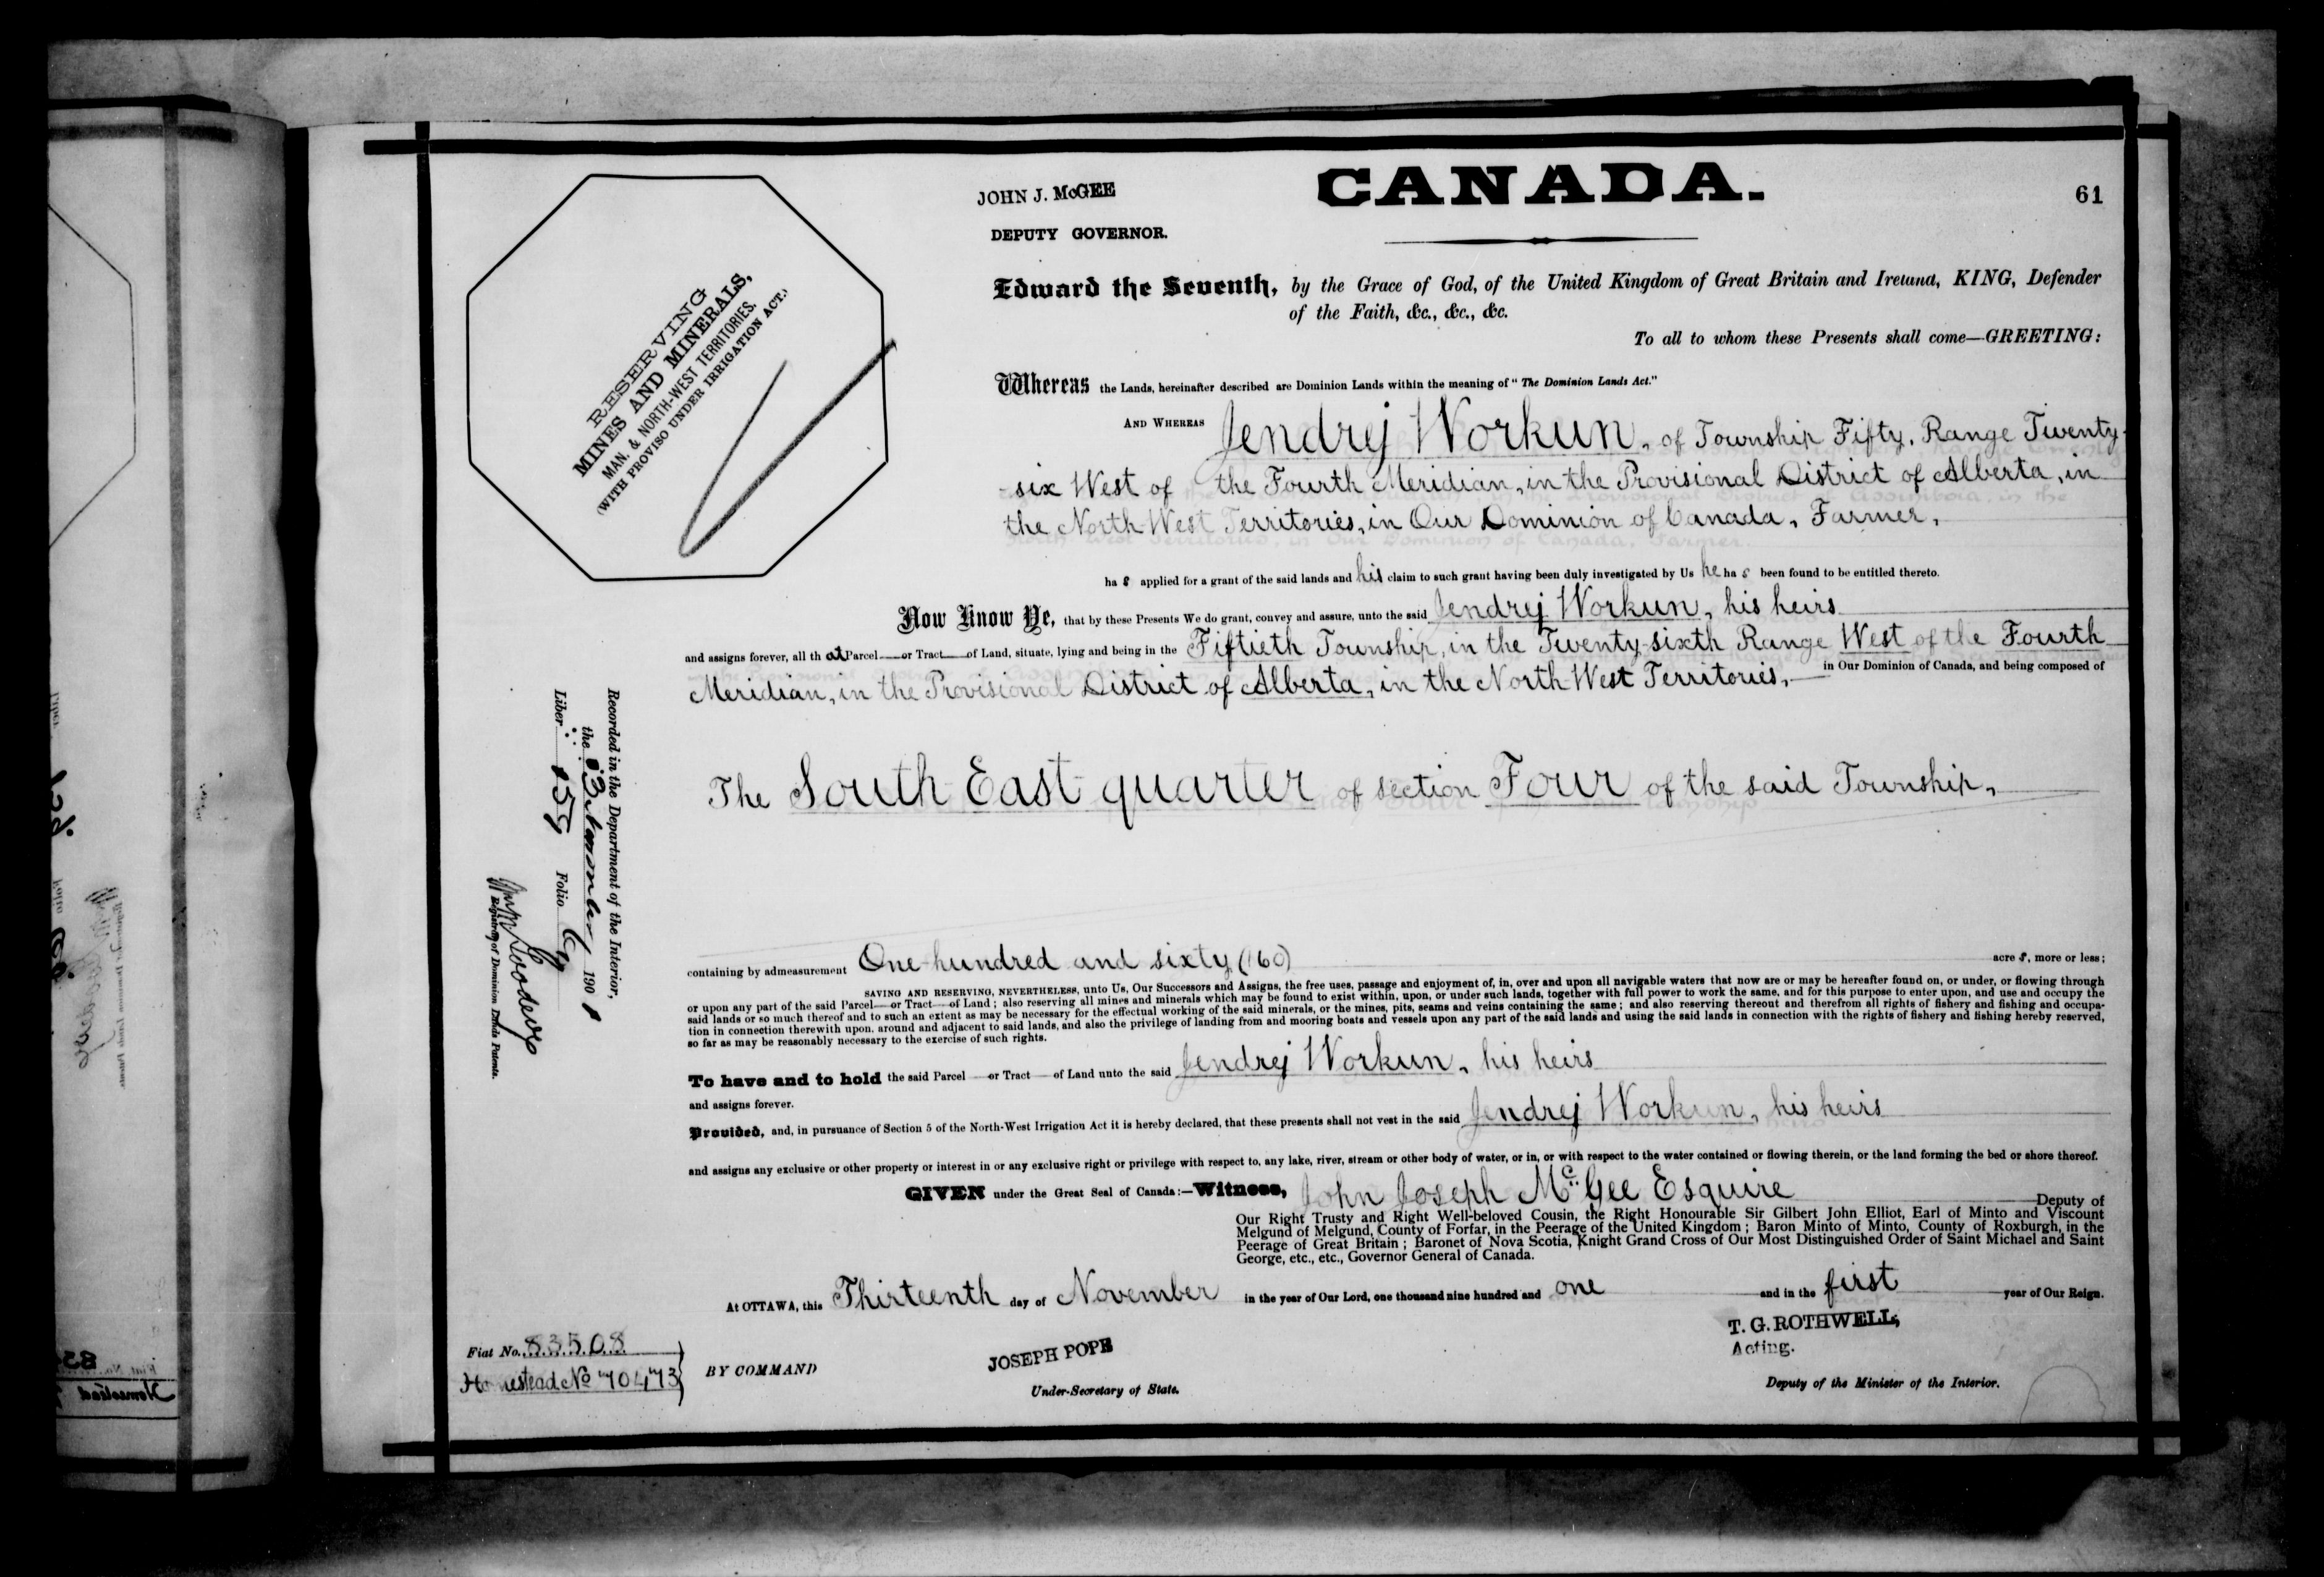 JOHN J. McGEE
DEPUTY GOVERNOR.
CANADA.
61
RESERVING
MINES AND MINERALS,
MAN. & NORTH-WEST TERRITORIES.
(WITH PROVISO UNDER IRRIGATION ACT.)
Edward the Seventh, by the Grace of God, of the United Kingdom of Great Britain and Ireland, KING, Defender
of the Faith, &c., &c., &c.
To all to whom these Presents shall come—GREETING:
Whereas the Lands, hereinafter described are Dominion Lands within the meaning of "The Dominion Lands Act."
AND WHEREAS Jendrej Workun, of Township Fifty, Range Twenty-
six West of the Fourth Meridian, in the Provisional District of Alberta, in
the North-West Territories, in Our Dominion of Canada, Farmer,
ha s applied for a grant of the said lands and his claim to such grant having been duly investigated by Us he ha s been found to be entitled thereto.
Now Know Ye, that by these Presents We do grant, convey and assure, unto the said Jendrej Workun, his heirs
and assigns forever, all th at Parcel—or Tract—of Land, situate, lying and being in the Fiftieth Township, in the Twenty-sixth Range West of the Fourth
Meridian, in the Provisional District of Alberta, in the North-West Territories,— in Our Dominion of Canada, and being composed of
The South East quarter of section Four of the said Township,
containing by admeasurement One hundred and sixty (160) acre s, more or less;
SAVING AND RESERVING, NEVERTHELESS, unto Us, Our Successors and Assigns, the free uses, passage and enjoyment of, in, over and upon all navigable waters that now are or may be hereafter found on, or under, or flowing through
or upon any part of the said Parcel—or Tract—of Land; also reserving all mines and minerals which may be found to exist within, upon, or under such lands, together with full power to work the same, and for this purpose to enter upon, and use and occupy the
said lands or so much thereof and to such an extent as may be necessary for the effectual working of the said minerals, or the mines, pits, seams and veins containing the same; and also reserving thereout and therefrom all rights of fishery and fishing and occupa-
tion in connection therewith upon, around and adjacent to said lands, and also the privilege of landing from and mooring boats and vessels upon any part of the said lands and using the said lands in connection with the rights of fishery and fishing hereby reserved,
so far as may be reasonably necessary to the exercise of such rights.
To have and to hold the said Parcel—or Tract—of Land unto the said Jendrej Workun, his heirs
and assigns forever.
Provided, and, in pursuance of Section 5 of the North-West Irrigation Act it is hereby declared, that these presents shall not vest in the said Jendrej Workun, his heirs
and assigns any exclusive or other property or interest in or any exclusive right or privilege with respect to, any lake, river, stream or other body of water, or in, or with respect to the water contained or flowing therein, or the land forming the bed or shore thereof.
GIVEN under the Great Seal of Canada:—Witness, John Joseph McGee Esquire Deputy of
Our Right Trusty and Right Well-beloved Cousin, the Right Honourable Sir Gilbert John Elliot, Earl of Minto and Viscount
Melgund of Melgund, County of Forfar, in the Peerage of the United Kingdom; Baron Minto of Minto, County of Roxburgh, in the
Peerage of Great Britain; Baronet of Nova Scotia, Knight Grand Cross of Our Most Distinguished Order of Saint Michael and Saint
George, etc., etc., Governor General of Canada.
At OTTAWA, this Thirteenth day of November in the year of Our Lord, one thousand nine hundred and one and in the first year of Our Reign.
T. G. ROTHWELL,
Acting.
Deputy of the Minister of the Interior.
BY COMMAND
JOSEPH POPE
Under-Secretary of State.
Fiat No. 83508
Homestead No 70473
Recorded in the Department of the Interior,
the 1901
Liber Folio 61
Registrar of Dominion Lands Patents.